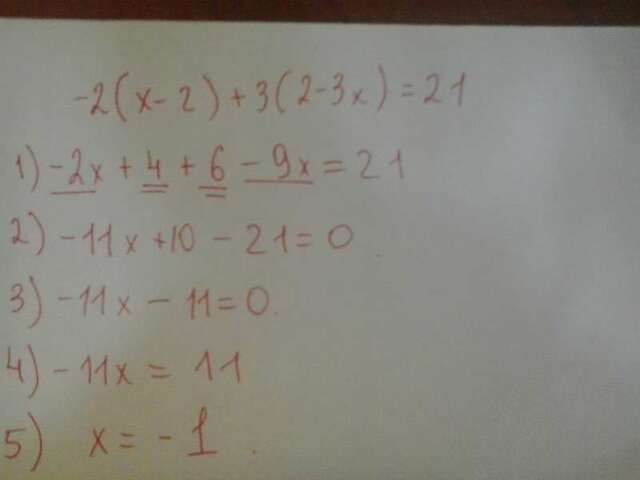 -2(x-2)+3(2-3x)=21
1) -2x+4+6-9x=21
2) -11x+10-21=0
3) -11x-11=0.
4) -11x=11
5) x=-1.